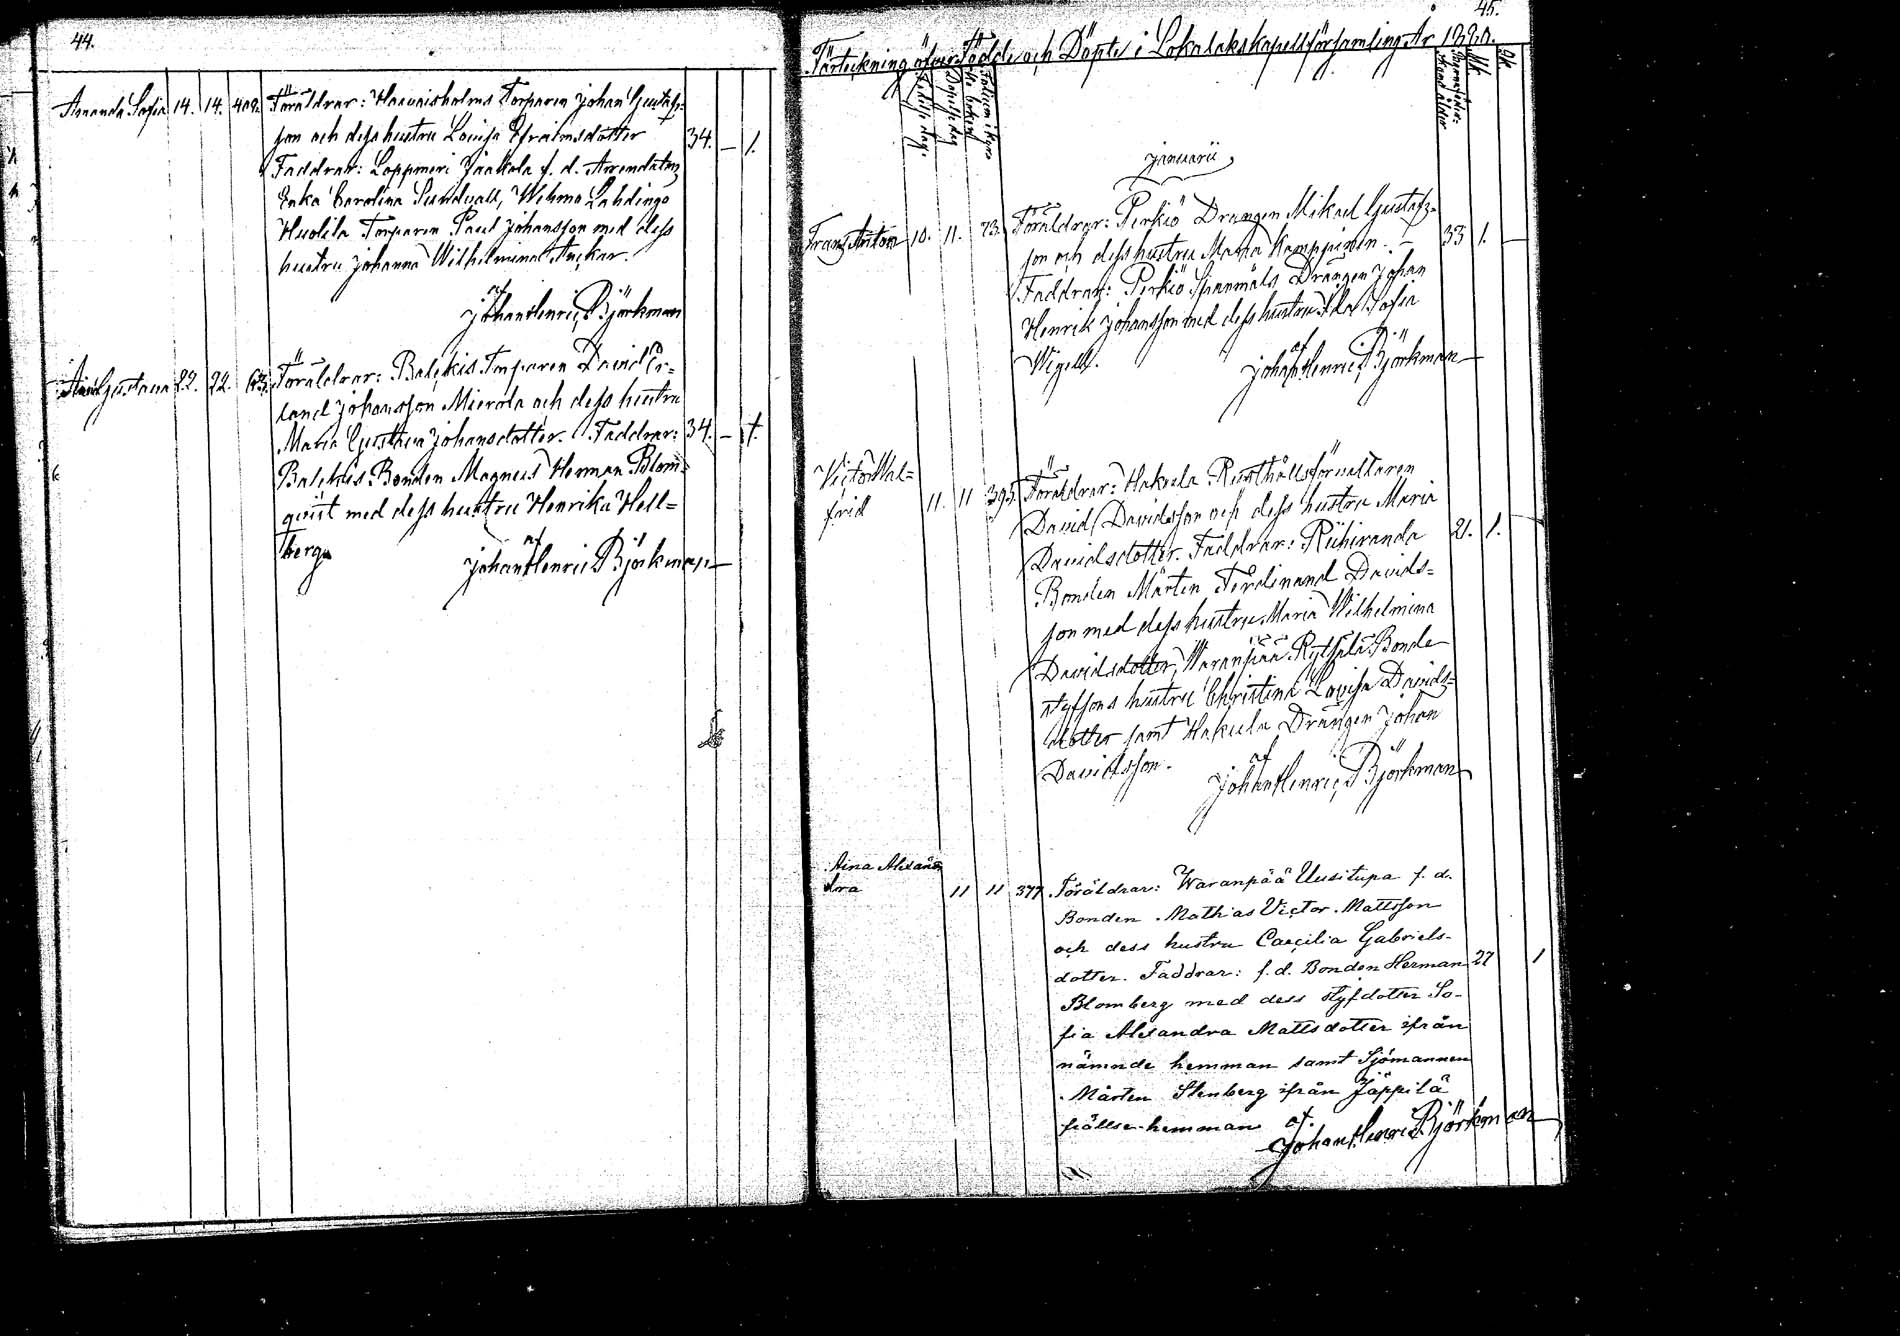 44.
Amanda Sofia 14. 14. 402. Föräldrar: Haavaisholms Torparen Johan Gustafs=
son och dess hustru Lovisa Efraimsdotter 34. — 1.
Faddrar: Loppmeri Jaakola f. d. Arrendatorn
Enka Carolina Sundvall, Wehmo Lahdingo
Huolila Torparen Paul Johansson med dess
hustru Johanna Wilhelmina Anckar.
af
Johan Henric Björkman
Gustava 22. 22. 63. Föräldrar: Balckis Torparen David Er=
land Johansson Mierola och dess hustru
Maria Gustava Johansdotter. Faddrar: 34. — 1.
Balckis Bonden Magnus Herman Blom=
qvist med dess hustru Henrika Hell=
berg
af
Johan Henric Björkman
45.
Förteckning öfver Födde och Döpte i Lokalaks kapellförsamling År 1880.
Födelse dag.
Dopelse dag
Folium i Kyrko boken
Barnaföder: skans ålder
Mk
Qk
Januarii
Franz Anton 10. 11. 73. Föräldrar: Perkiö Drängen Mikael Gustafs=
son och dess hustru Maria Kamppinen. — 33 1. —
Faddrar: Perkiö Spannmåls Drängen Johan
Henrik Johansson med dess hustru Ida Sofia
Wigell.
af
Johan Henric Björkman
Victor Wal=
frid 11. 11 395. Föräldrar: Hakula Rusthållsförvaltaren
David Davidsson och dess hustru Maria
Davidsdotter. Faddrar: Riihiranda 21. 1. —
Bonden Mårten Ferdinand Davids=
son med dess hustru Maria Wilhelmina
Davidsdotter, Waranpää Rytsälä Bonde
styfsons hustru Christina Lovisa Davids=
dotter samt Hakula Drängen Johan
Davidsson.
af
Johan Henric Björkman
Aina Alexan
dra 11 11 377. Föräldrar: Waranpää Uusitupa f. d.
Bonden Mathias Victor Mattsson
och dess hustru Caecilia Gabriels-
dotter. Faddrar: f. d. Bonden Herman 27 1
Blomberg med dess styfdotter So-
fia Alexandra Mattsdotter ifrån
nämnde hemman samt Sjömannen
Mårten Stenberg ifrån Jäppilä
frälse-hemman af.
Johan Henric Björkman